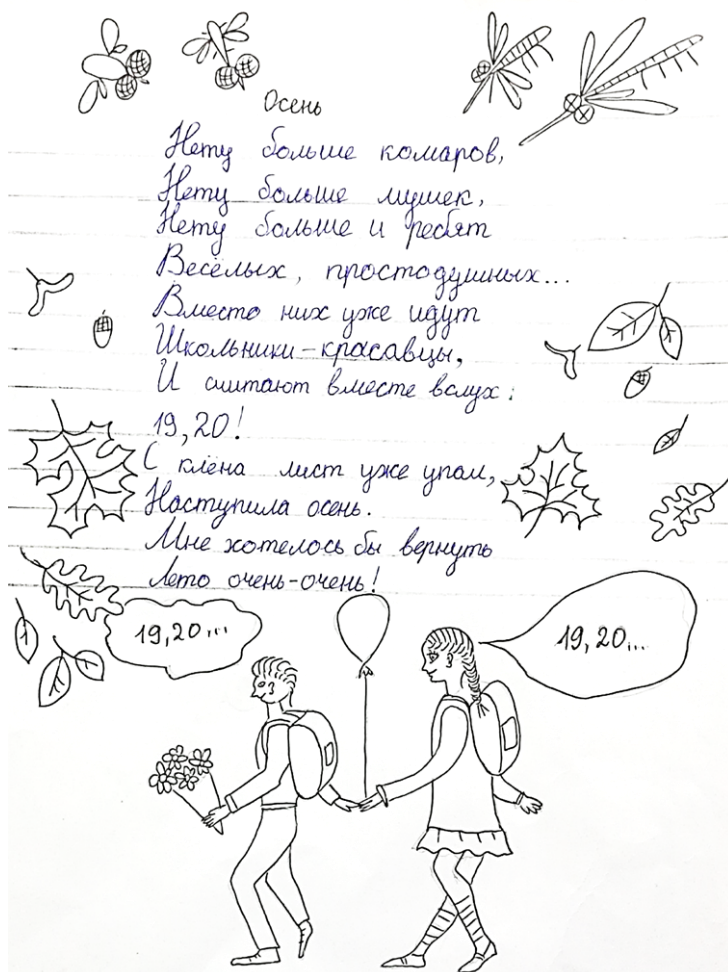 Осень
Нету больше комаров,
Нету больше мушек,
Нету больше и ребят
Весёлых, простодушных...
Вместо них уже идут
Школьники-красавцы,
И считают вместе вслух:
19,20!
С клёна лист уже упал,
Наступила осень.
Мне хотелось бы вернуть
Лето очень-очень!
19,20...
19,20...